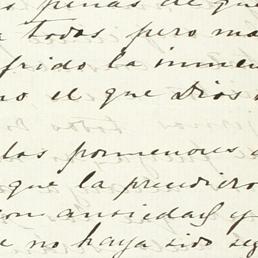 penas de que
todas, pero ma
frido la inmen
no el que Dios
las pormenores
que la prendiero
con ansiedad y
e no haya sido seg